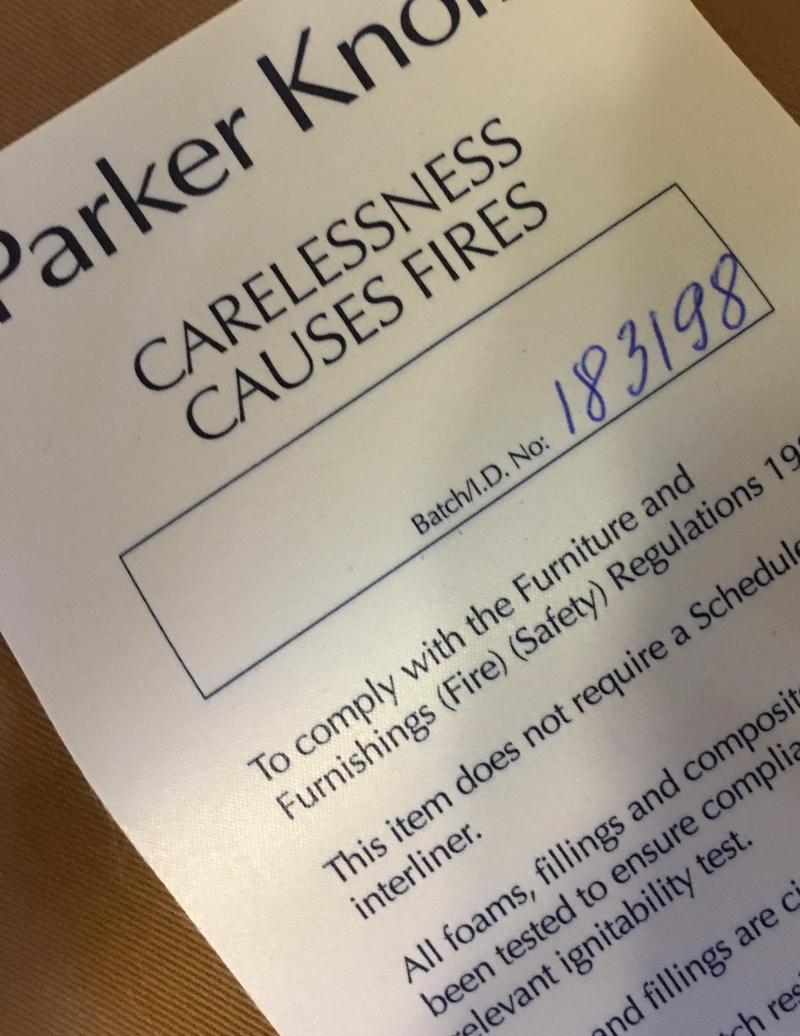 Parker
CARELESSNESS
CAUSES FIRES
Batch/I.D. No: 183198
To comply with the Furniture and
Furnishings (Fire) (Safety) Regulations
This item does not require a Schedule
interliner.
All foams, fillings and
been tested to ensure
relevant ignitability test.
and fillings are